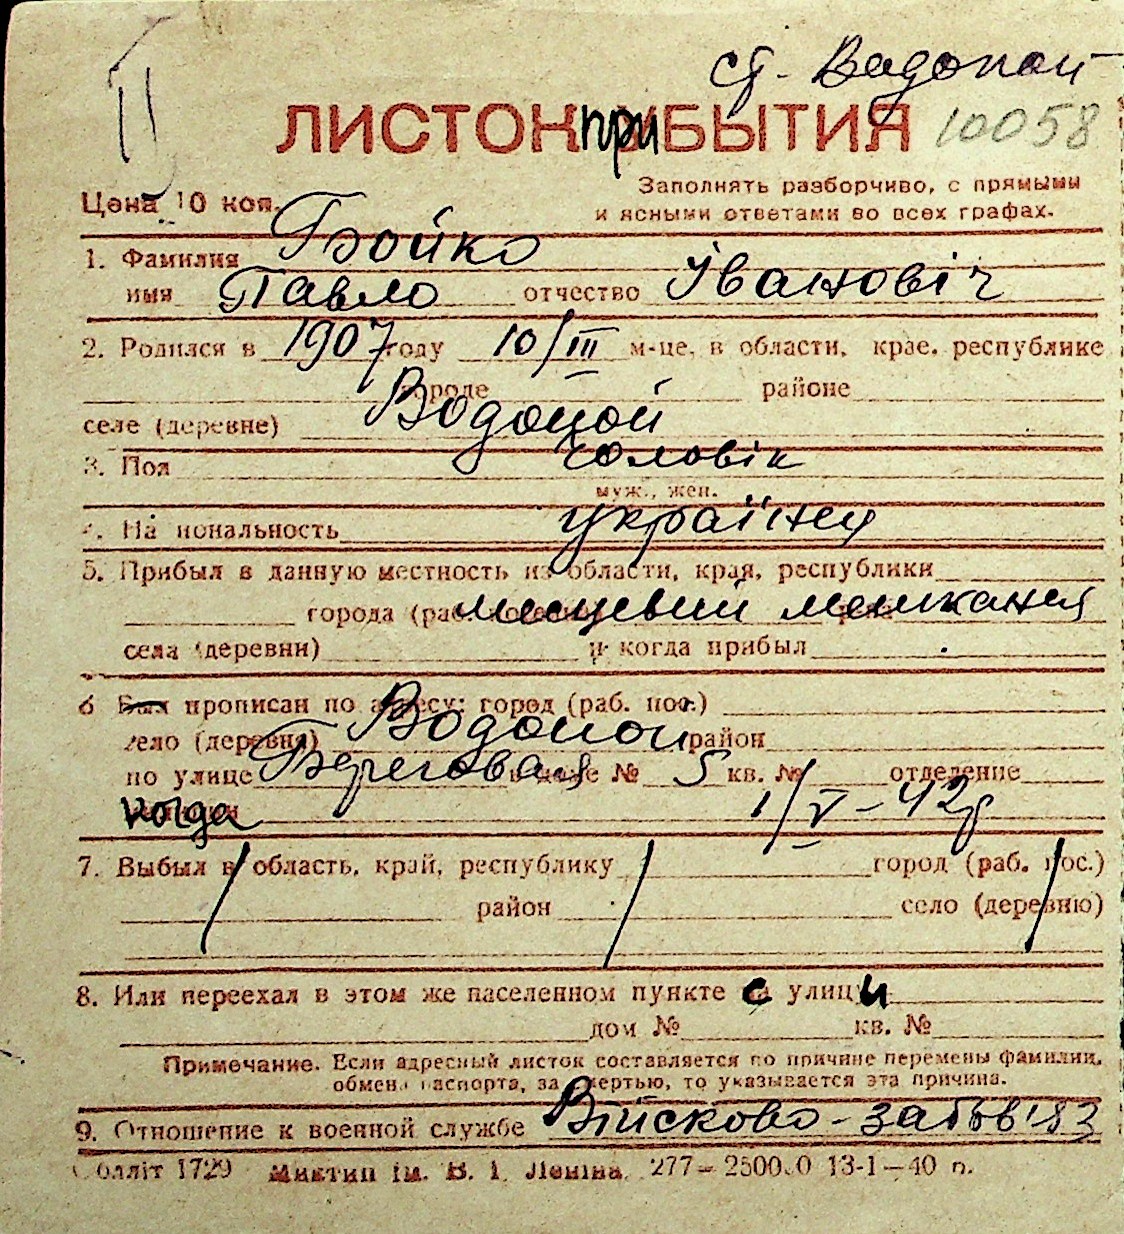 II
ст. Водопой
ЛИСТОК ПРИБЫТИЯ 10058
Цена 10 коп.
Заполнять разборчиво, с прямыми
и ясными ответами во всех графах.
1. Фамилия Бойко
имя Павло отчество Іванович
2. Родился в 1907 году 10/III м-це, в области, крае, республике
городе районе
селе (деревне) Водопой
3. Пол чоловік
муж., жен.
4. Национальность українец
5. Прибыл в данную местность из области, края, республики
города (раб. поселка) місцевий мешканец
села (деревни) и когда прибыл
6 Был прописан по адресу: город (раб. пос.)
село (деревня) Водопой район
по улице Берегова в доме № 5 кв. № отделение
когда 1/V-42 р
7. Выбыл в область, край, республику город (раб. пос.)
район село (деревню)
8. Или переехал в этом же населенном пункте с улицы
дом № кв. №
Примечание. Если адресный листок составляется по причине перемены фамилии,
обмена паспорта, за смертью, то указывается эта причина.
9. Отношение к военной службе Військово-
Обліт 1729 Миктип ім. В. І. Леніна. 277-250000 13-1-40 п.